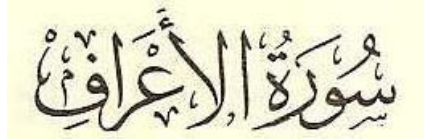 سُورَةُ الأَعْرَافِ